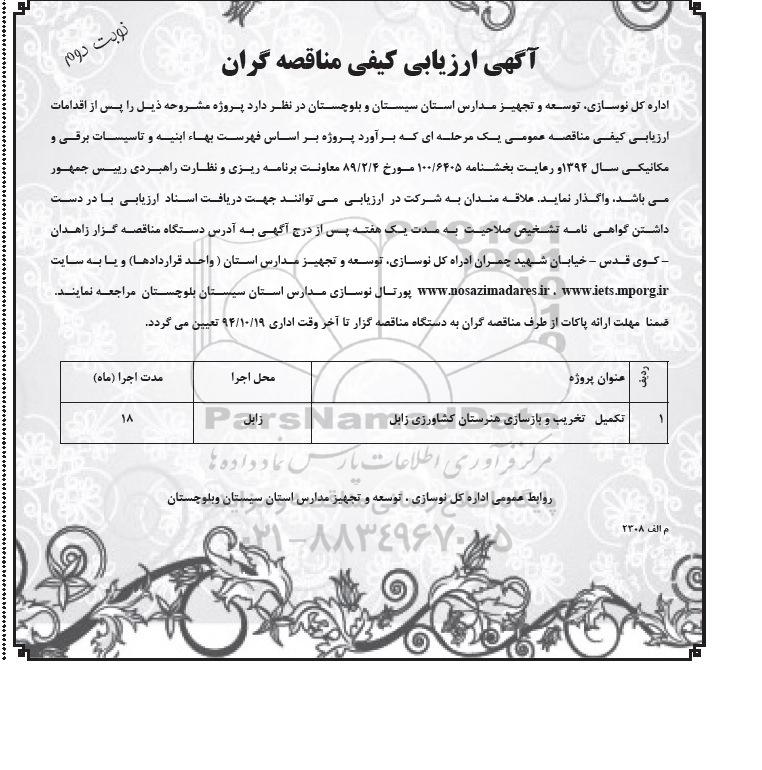 نوبت دوم
آگهی ارزیابی کیفی مناقصه گران
اداره کل نوسازی، توسعه و تجهیز مدارس استان سیستان و بلوچستان در نظر دارد پروژه مشروحه ذیل را پس از اقدامات
ارزیابی کیفی مناقصه عمومی یک مرحله ای که برآورد پروژه بر اساس فهرست بهاء ابنیه و تاسیسات برقی و
مکانیکی سال ۱۳۹۴و رعایت بخشنامه ۱۰۰/۶۴۰۵ مورخ ۸۹/۲/۴ معاونت برنامه ریزی و نظارت راهبردی رییس جمهور
می باشد، واگذار نماید. علاقه مندان به شرکت در ارزیابی می توانند جهت دریافت اسناد ارزیابی با در دست
داشتن گواهی نامه تشخیص صلاحیت به مدت یک هفته پس از درج آگهی به آدرس دستگاه مناقصه گزار زاهدان
– کوی قدس – خیابان شهید چمران ادراه کل نوسازی، توسعه و تجهیز مدارس استان ( واحد قراردادها) و یا به سایت
www.nosazimadares.ir ، www.iets.mporg.ir پورتال نوسازی مدارس استان سیستان بلوچستان مراجعه نمایند.
ضمنا مهلت ارائه پاکات از طرف مناقصه گران به دستگاه مناقصه گزار تا آخر وقت اداری ۹۴/۱۰/۱۹ تعیین می گردد.
ردیف عنوان پروژه محل اجرا مدت اجرا (ماه)
۱ تکمیل تخریب و بازسازی هنرستان کشاورزی زابل زابل ۱۸
ParsNamadData
مرکز فرآوری اطلاعات پارس نماد داده ها
روابط عمومی اداره کل نوسازی ، توسعه و تجهیز مدارس استان سیستان وبلوچستان
م الف ۲۳۰۸
۰۲۱-۸۸۳۴۹۶۷۰-۵